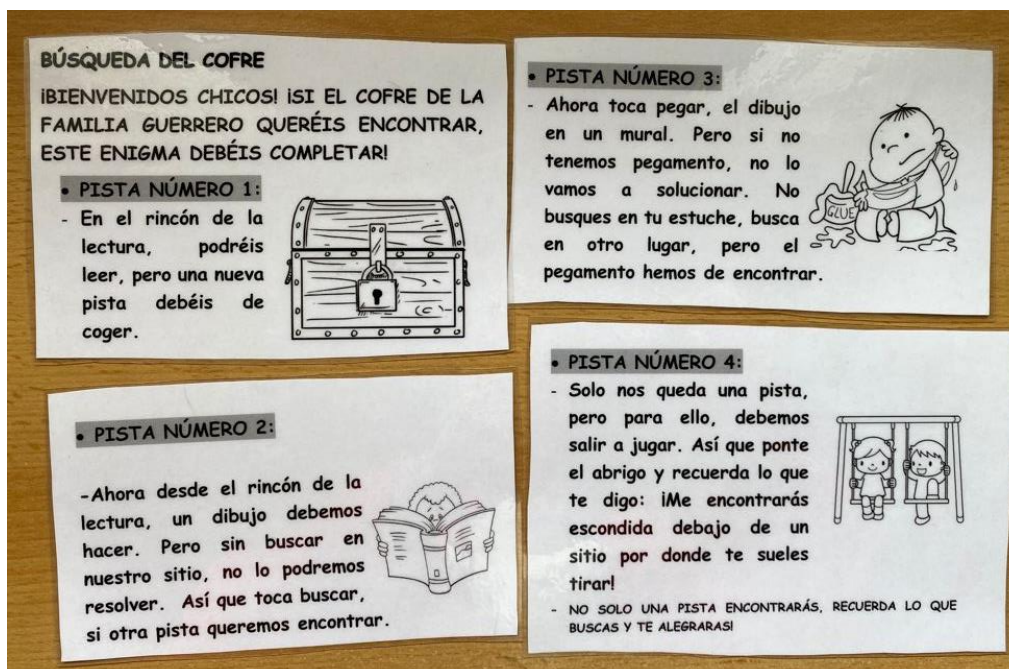 BÚSQUEDA DEL COFRE
¡BIENVENIDOS CHICOS! ¡SI EL COFRE DE LA
FAMILIA GUERRERO QUERÉIS ENCONTRAR,
ESTE ENIGMA DEBÉIS COMPLETAR!
• PISTA NÚMERO 1:
- En el rincón de la
lectura, podréis
leer, pero una nueva
pista debéis de
coger.
• PISTA NÚMERO 2:
-Ahora desde el rincón de la
lectura, un dibujo debemos
hacer. Pero sin buscar en
nuestro sitio, no lo podremos
resolver. Así que toca buscar,
si otra pista queremos encontrar.
• PISTA NÚMERO 3:
- Ahora toca pegar, el dibujo
en un mural. Pero si no
tenemos pegamento, no lo
vamos a solucionar. No
busques en tu estuche, busca
en otro lugar, pero el
pegamento hemos de encontrar.
GLUE
• PISTA NÚMERO 4:
- Solo nos queda una pista,
pero para ello, debemos
salir a jugar. Así que ponte
el abrigo y recuerda lo que
te digo: ¡Me encontrarás
escondida debajo de un
sitio por donde te sueles
tirar!
- NO SOLO UNA PISTA ENCONTRARÁS, RECUERDA LO QUE
BUSCAS Y TE ALEGRARAS!